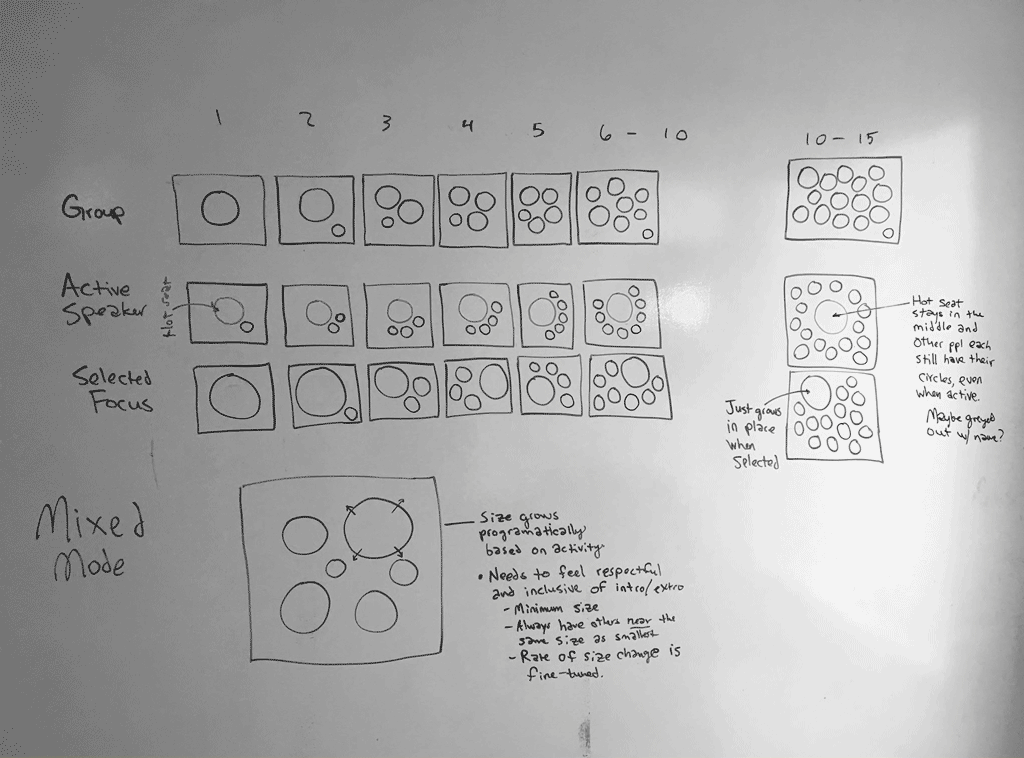 1 2 3 4 5 6 - 10 10 - 15
Group
Active
Speaker
Hot seat
Hot seat
stays in the
middle and
other ppl each
still have their
circles, even
when active.
Maybe greyed
out w/ name?
Selected
Focus
Just grows
in place
when
selected
Mixed
Mode
Size grows
programatically
based on activity
• Needs to feel respectful
and inclusive of intro/extro
- Minimum size
- Always have others near the
same size as smallest
- Rate of size change is
fine-tuned.